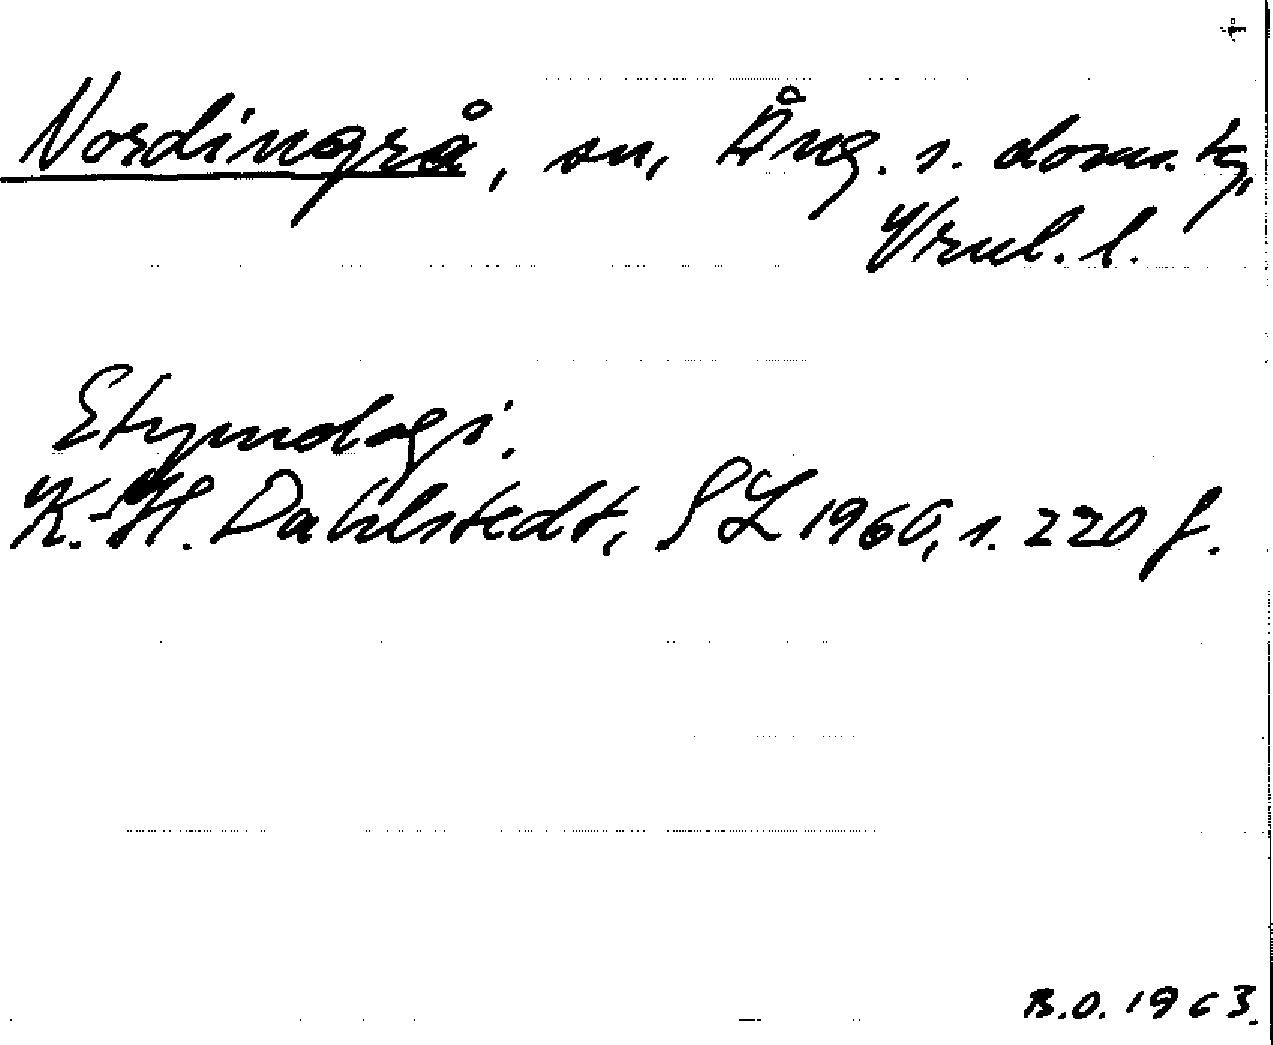 Nordingrå, sn, Ång. s. doms. tg,
Vrnl. l.
Etymologi.
K.-H. Dahlstedt, SL 1960, s. 220 f.
B.O. 1963.